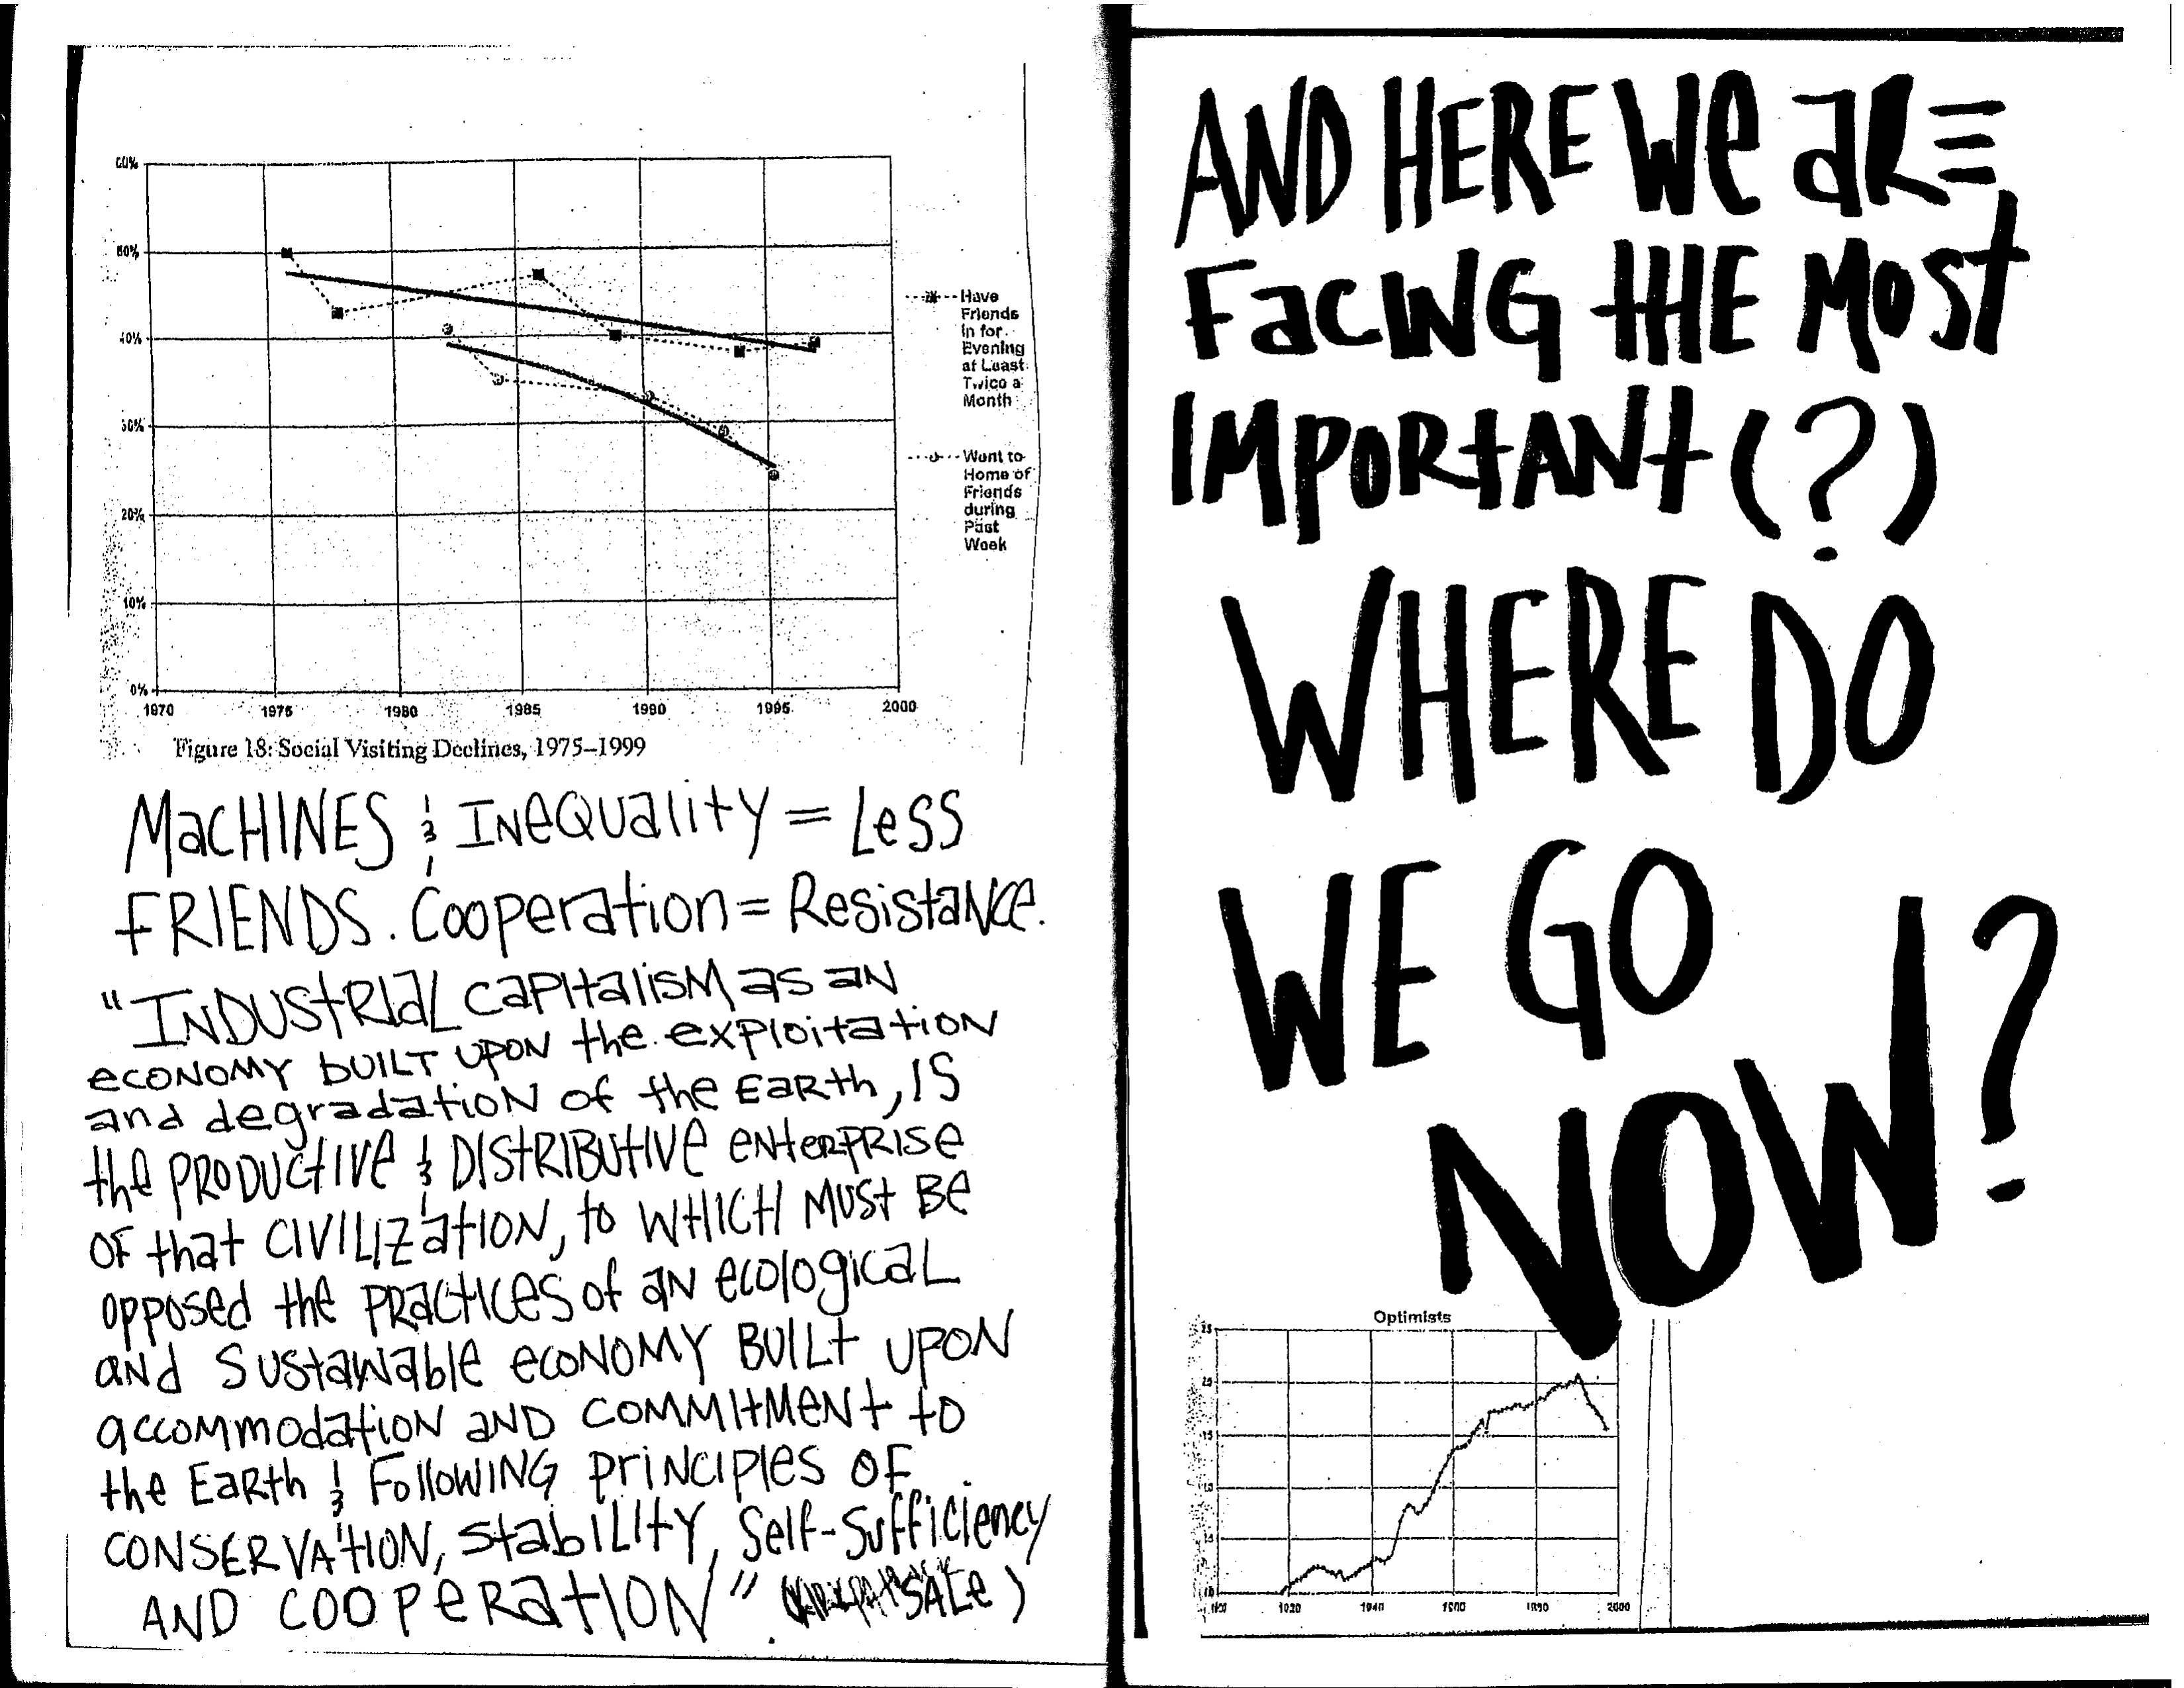 60%
50%
40%
30%
20%
10%
0%
1970 1975 1980 1985 1990 1995 2000
Have
Friends
in for
Evening
at Least
Twice a
Month
Went to
Home of
Friends
during
Past
Week
Figure 18: Social Visiting Declines, 1975–1999
MACHINES & INEQUALITY = LESS
FRIENDS. COOPERATION = RESISTANCE.
"INDUSTRIAL CAPITALISM AS AN
ECONOMY BUILT UPON the EXPLOITATION
and degradation of the EARTH, IS
the PRODUCTIVE & DISTRIBUTIVE ENTERPRISE
OF that CIVILIZATION, to WHICH MUST BE
opposed the PRACTICES of AN ecological
and SUSTAINABLE ECONOMY BUILT UPON
accommodation AND COMMITMENT to
the EARTH & FOLLOWING PRINCIPLES OF
CONSERVATION, STABILITY, Self-Sufficiency
AND COOPERATION" SALE)
AND HERE WE ARE
FACING THE MOST
IMPORTANT (?)
WHERE DO
WE GO
NOW?
Optimists
1920 1940 1980 2000